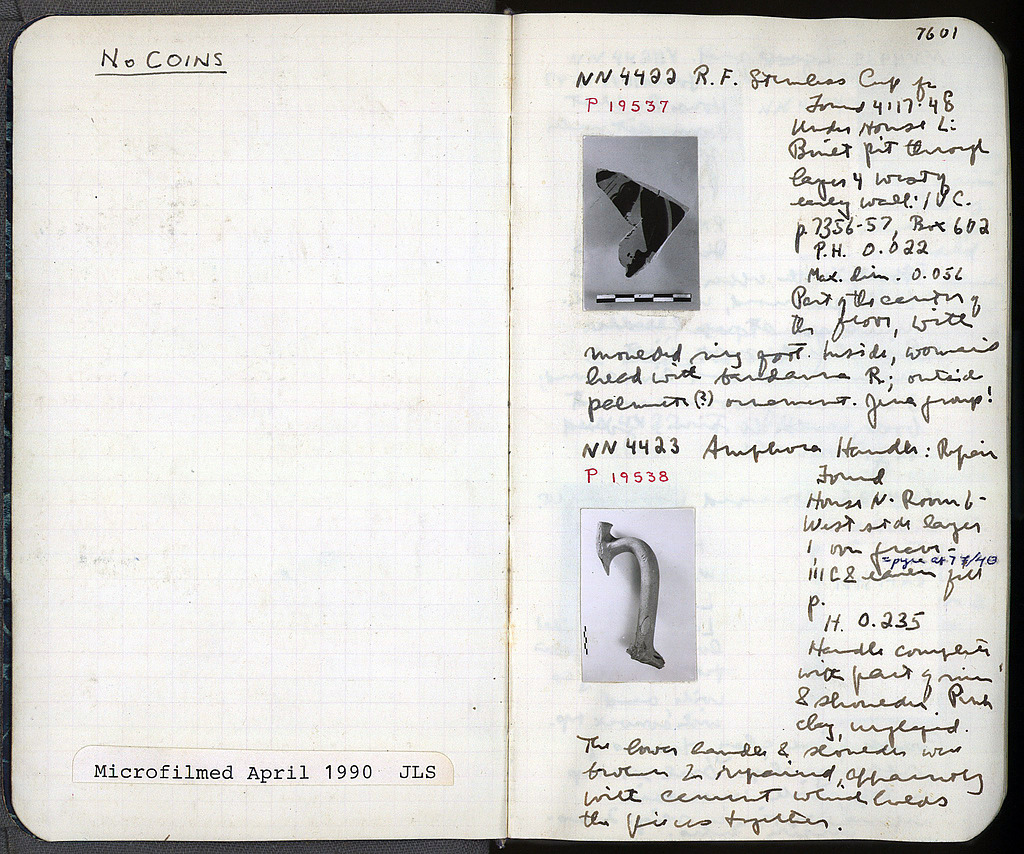 No COINS
Microfilmed April 1990 JLS
7601
NN 4422 R.F. Stemless Cup fr
P 19537
Found 4·17·48
Under House L:
Burnt pit through
layer 4 west of
early wall: IV C.
p 7356-57, Box 602
P.H. 0.022
Max. dim. 0.056
Part of the center of
the floor, with
moulded ring foot. Inside, woman's
head with bandanna R; outside
palmette (?) ornament. Jena group!
NN 4423 Amphora Handle: Repair
P 19538
Found
House N· Room 6-
West side layer
1 over floor-
=pyre at 77/ΛΘ
III C & earlier fill
p.
H. 0.235
Handle complete
with part of rim
& shoulder. Pink
clay, unglazed.
The lower handle & shoulder were
broken & repaired, apparently
with cement which holds
the pieces together.